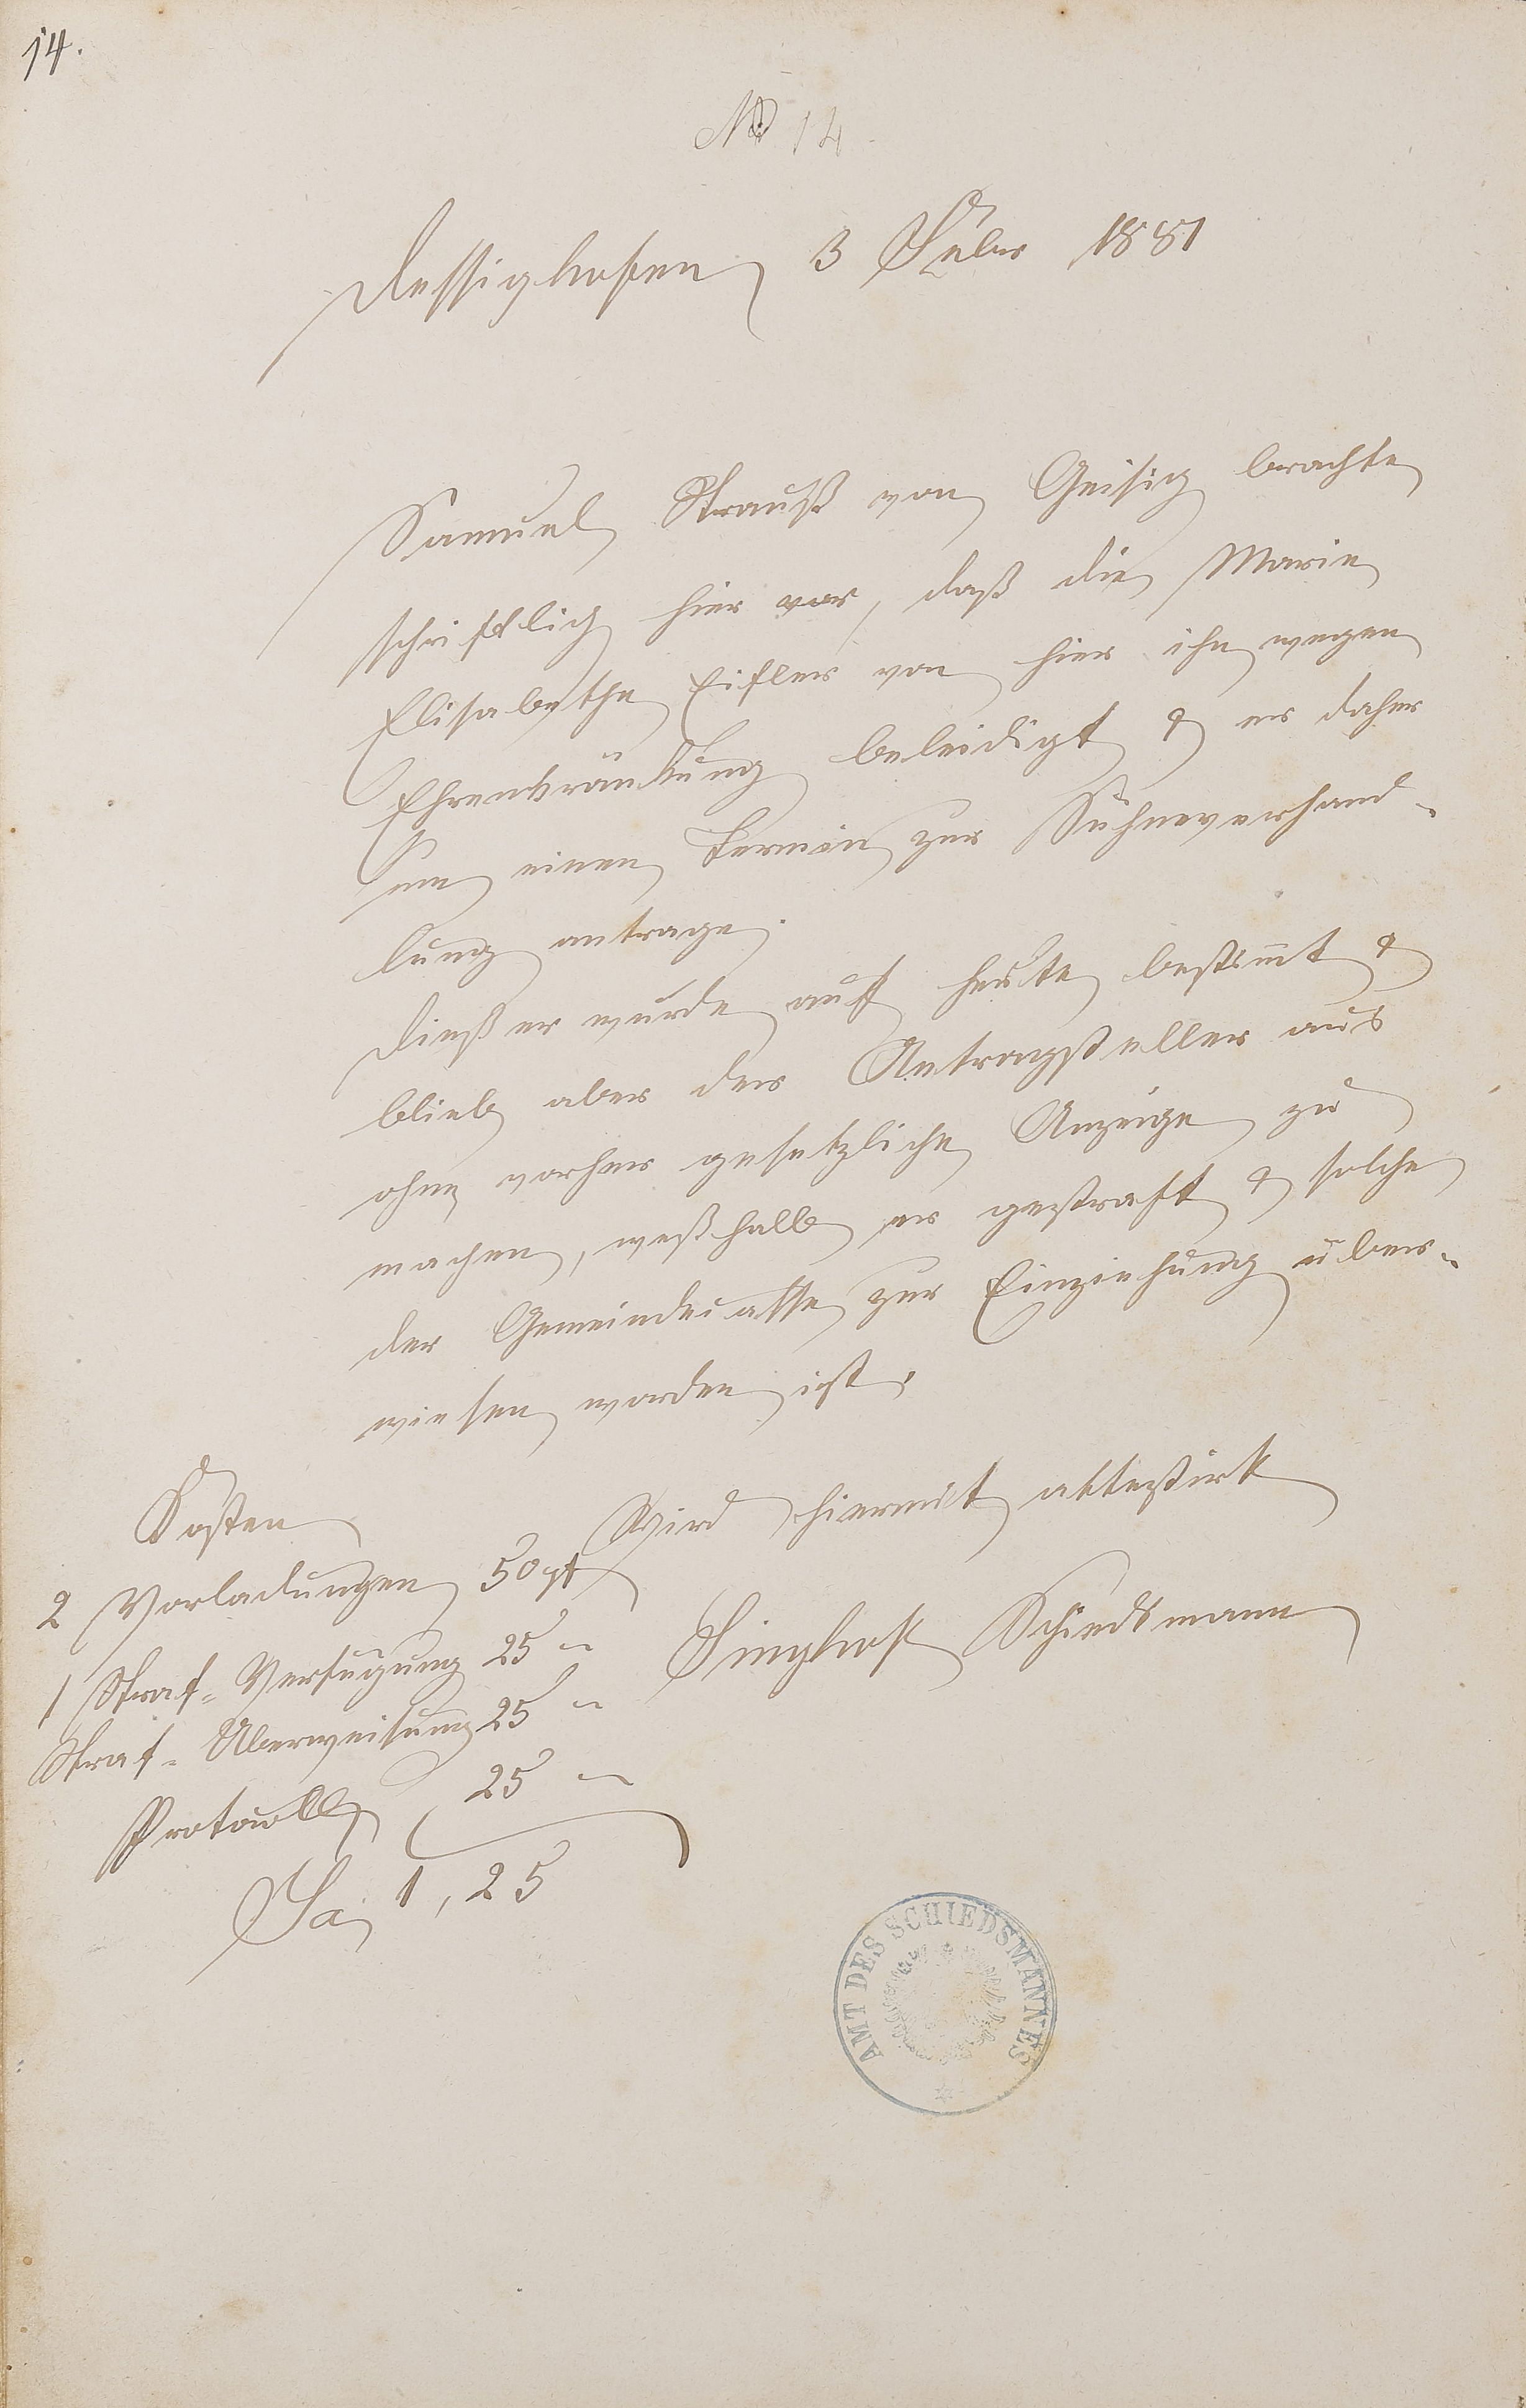 14.
No 14.
Dessighofen, 3 Febr 1881
Samuel Strauß von Geisig brachte
schriftlich hier vor, daß die Marie
Elisabethe Eifler von hier ihn wegen
Ehrenkränkung beleidigt & er daher
um einen Termin zur Sühneverhand-
lung antrage.
Dießer wurde auf heute bestimt &
blieb aber der Antragsteller aus
ohne vorher gesetzliche Anzeige zu
machen, weßhalb er gestraft & solche
der Gemeindecasse zur Einziehung über-
wiesen worden ist.
Wird hiermit attestirt
Singhof Schiedsmann
Kosten
2 Vorladungen 50 pf
1 Straf-Verfügung 25 "
Straf-Überweisung 25 "
Protocoll 25 "
Sa. 1,25
AMT DES SCHIEDSMANNES